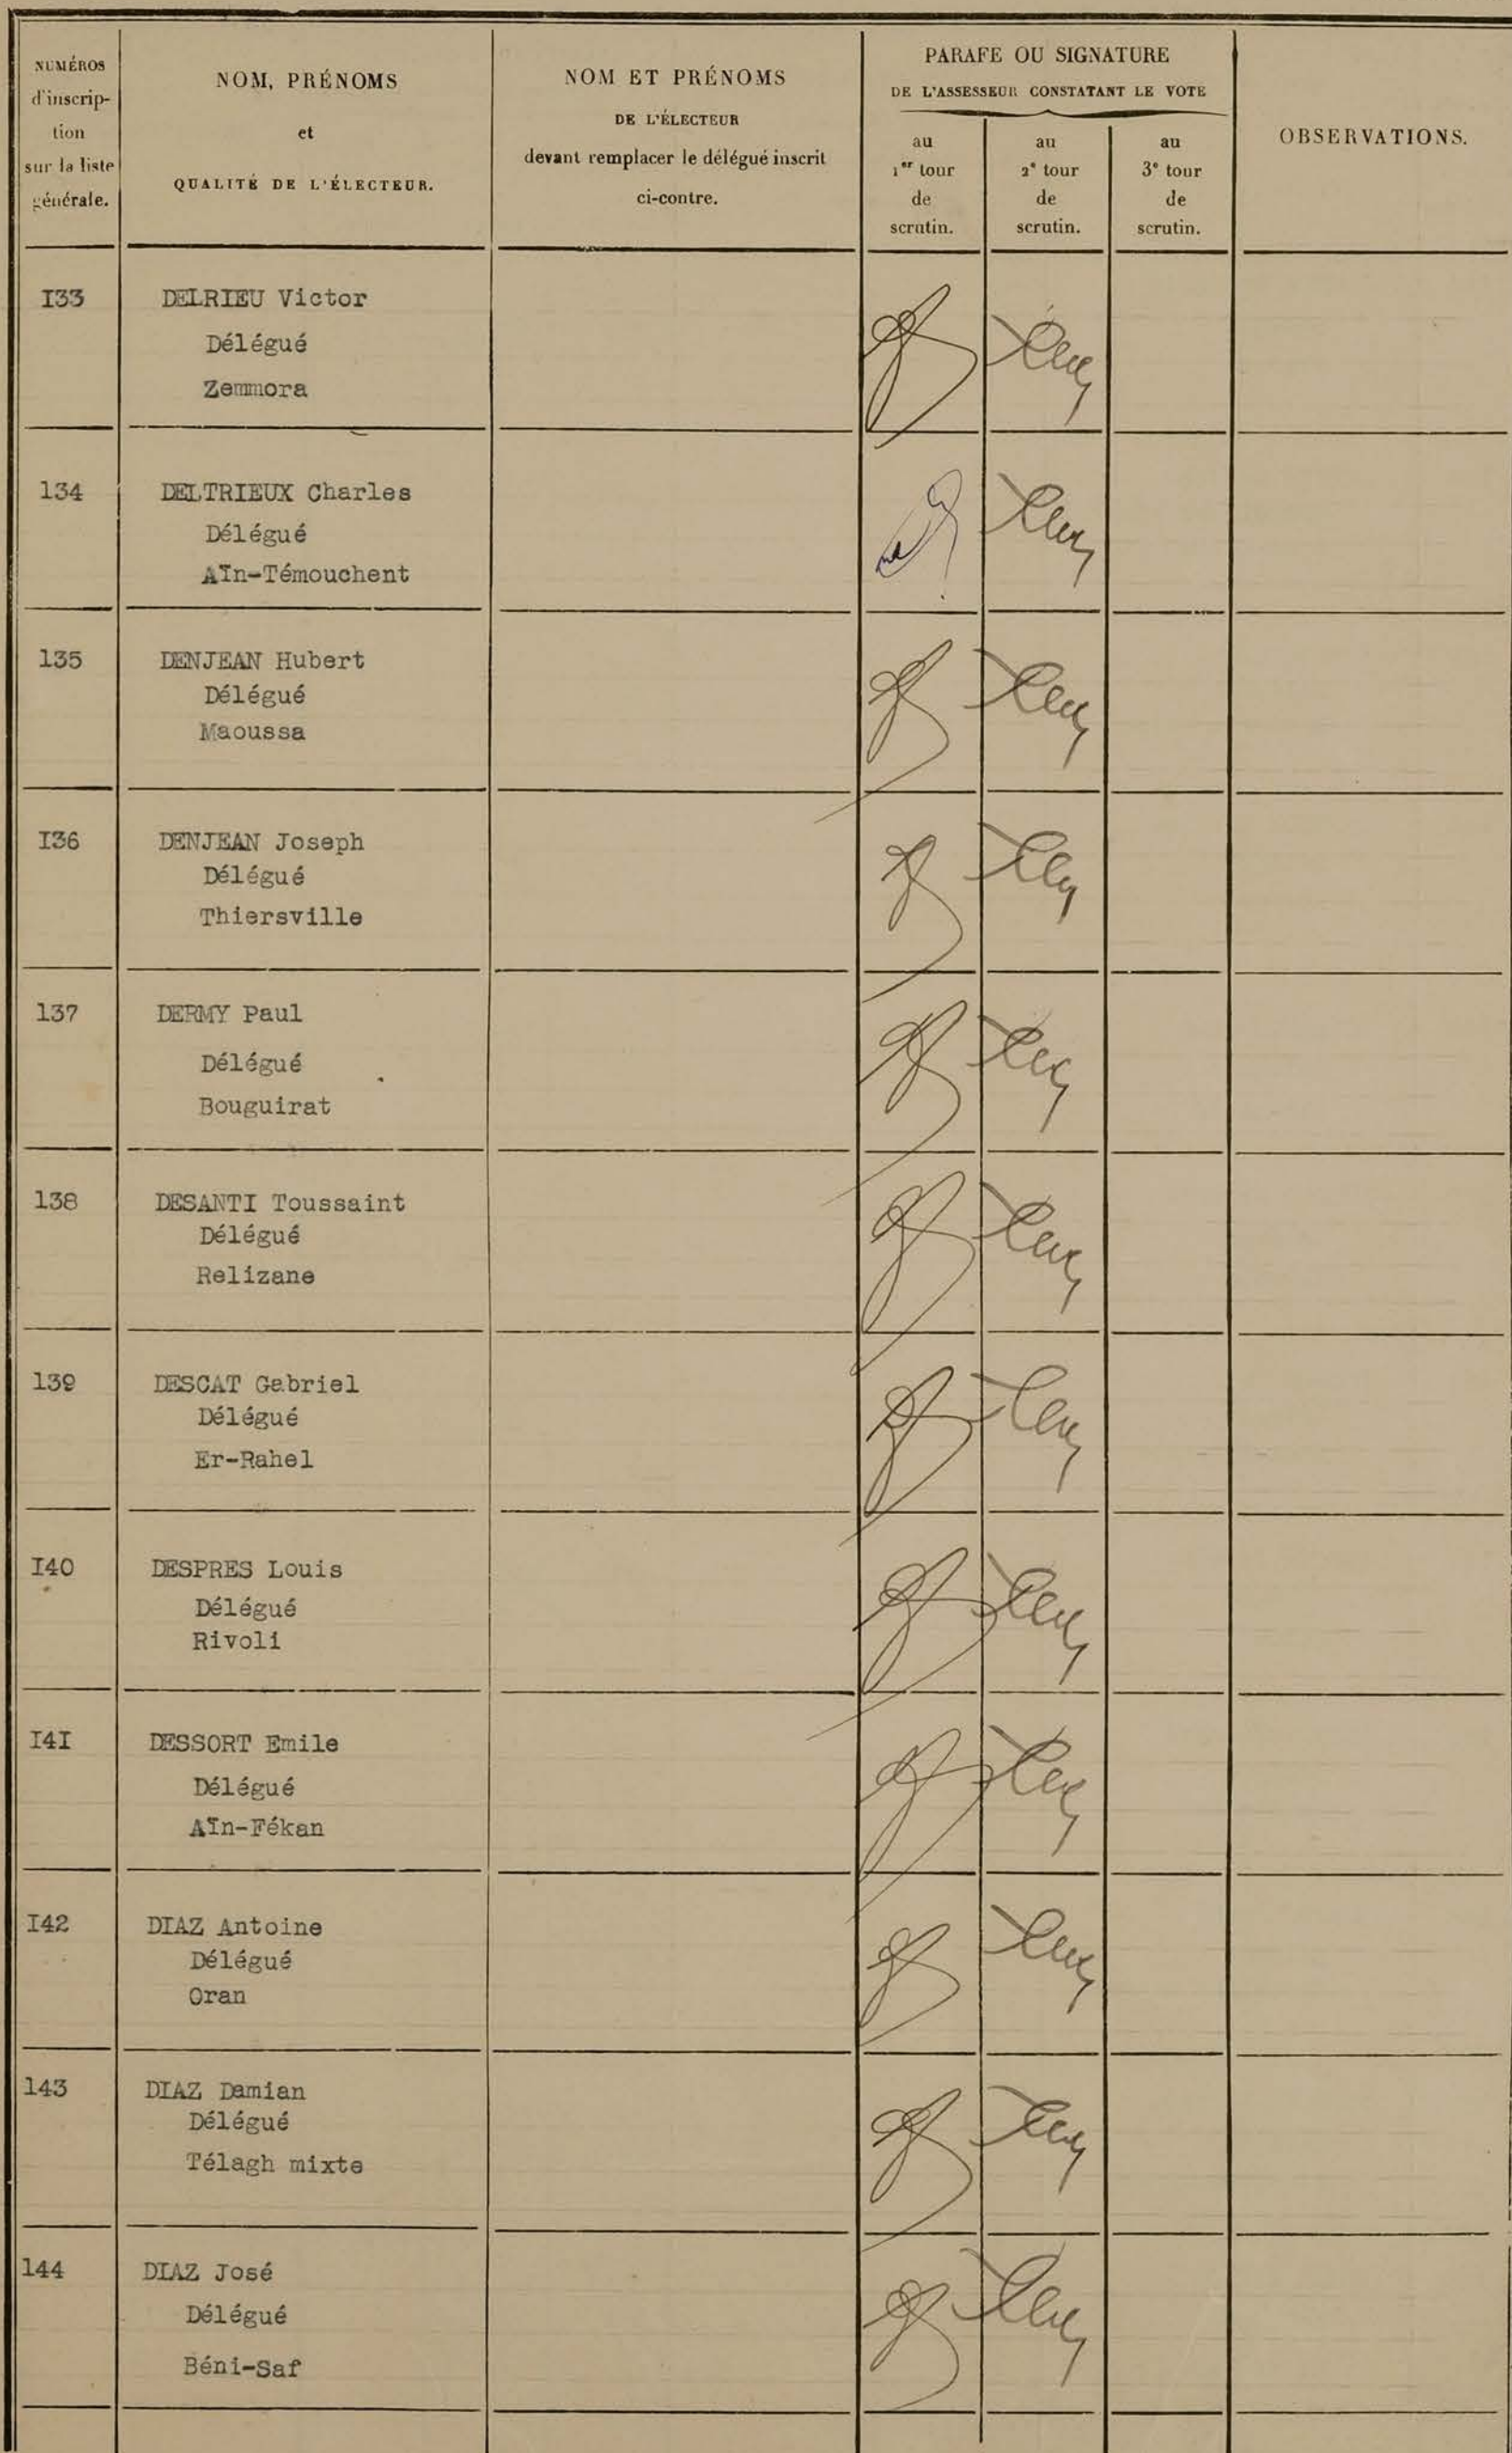 NUMÉROS
d'inscrip-
tion
sur la liste
générale.
NOM, PRÉNOMS
et
QUALITÉ DE L'ÉLECTEUR.
NOM ET PRÉNOMS
DE L'ÉLECTEUR
devant remplacer le délégué inscrit
ci-contre.
PARAFE OU SIGNATURE
DE L'ASSESSEUR CONSTATANT LE VOTE
au
1er tour
de
scrutin.
au
2e tour
de
scrutin.
au
3e tour
de
scrutin.
OBSERVATIONS.
I33 DELRIEU Victor
Délégué
Zemmora
134 DELTRIEUX Charles
Délégué
Aïn-Témouchent
135 DENJEAN Hubert
Délégué
Maoussa
I36 DENJEAN Joseph
Délégué
Thiersville
137 DERMY Paul
Délégué
Bouguirat
138 DESANTI Toussaint
Délégué
Relizane
139 DESCAT Gabriel
Délégué
Er-Rahel
I40 DESPRES Louis
Délégué
Rivoli
I4I DESSORT Emile
Délégué
Aïn-Fékan
I42 DIAZ Antoine
Délégué
Oran
143 DIAZ Damian
Délégué
Télagh mixte
144 DIAZ José
Délégué
Béni-Saf